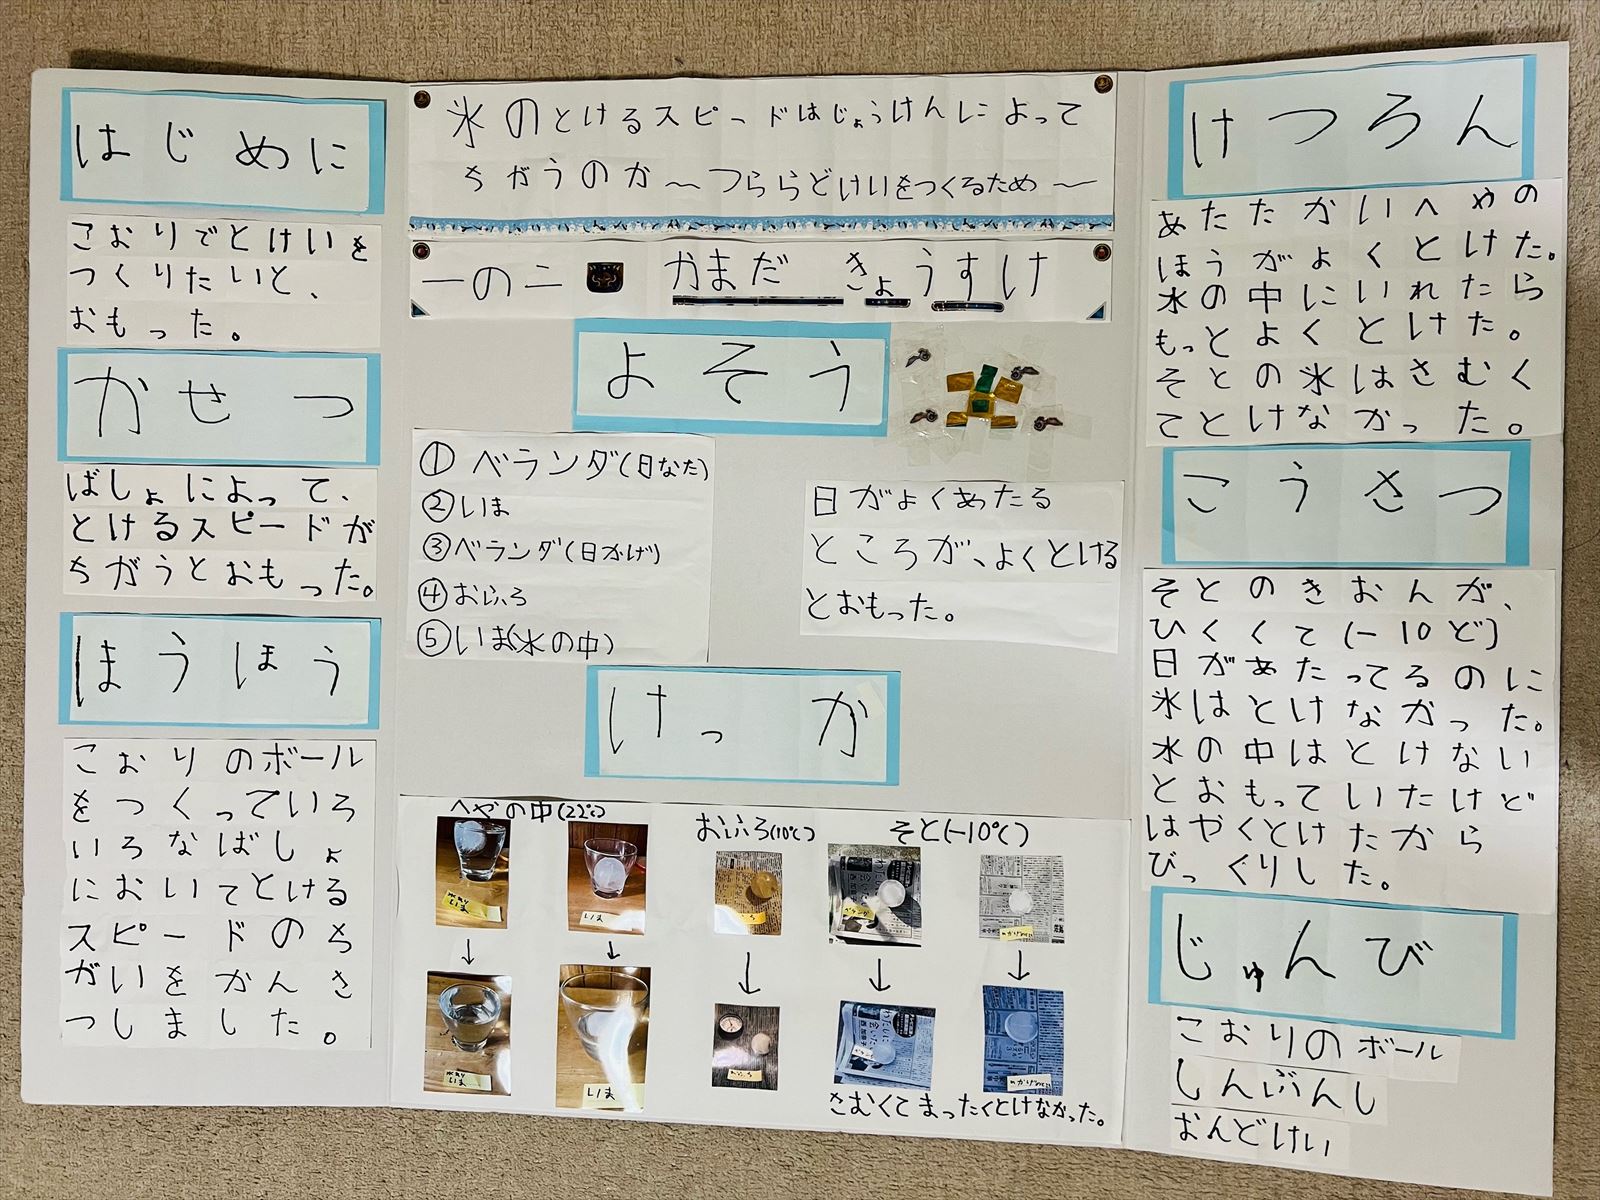 氷のとけるスピードはじょうけんによって
ちがうのか〜つららどけいをつくるため〜
一の二 かまだ きょうすけ
はじめに
こおりでとけいを
つくりたいと、
おもった。
かせつ
ばしょによって、
とけるスピードが
ちがうとおもった。
ほうほう
こおりのボール
をつくっていろ
いろなばしょ
においてとける
スピードのち
がいをかんさ
つしました。
よそう
①ベランダ(日なた)
②いま
③ベランダ(日かげ)
④おふろ
⑤いま(水の中)
日がよくあたる
ところが、よくとける
とおもった。
けっか
へやの中(22℃)
おふろ(10℃)
そと(-10℃)
いま
いま
いま
いま
さむくてまったくとけなかった。
けつろん
あたたかいへやの
ほうがよくとけた。
水の中にいれたら
もっとよくとけた。
そとの氷はさむく
てとけなかった。
こうさつ
そとのきおんが、
ひくくて(-10ど)
日があたってるのに
氷はとけなかった。
水の中はとけない
とおもっていたけど
はやくとけたから
びっくりした。
じゅんび
こおりのボール
しんぶんし
おんどけい